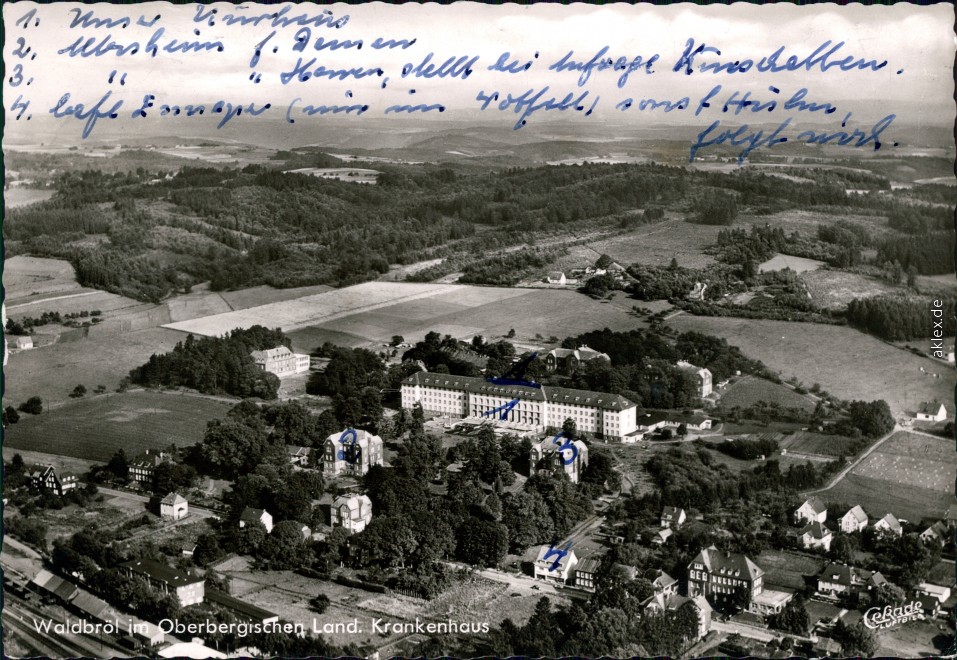 1. Unser Kurhaus
2. Altersheim f. Damen
3. " " Herren, stellt bei
4. Café (nur im Notfall) sonst
folgt wird.
aklex.de
1
2
3
4
Waldbröl im Oberbergischen Land. Krankenhaus
Cekade
LUFTBILD